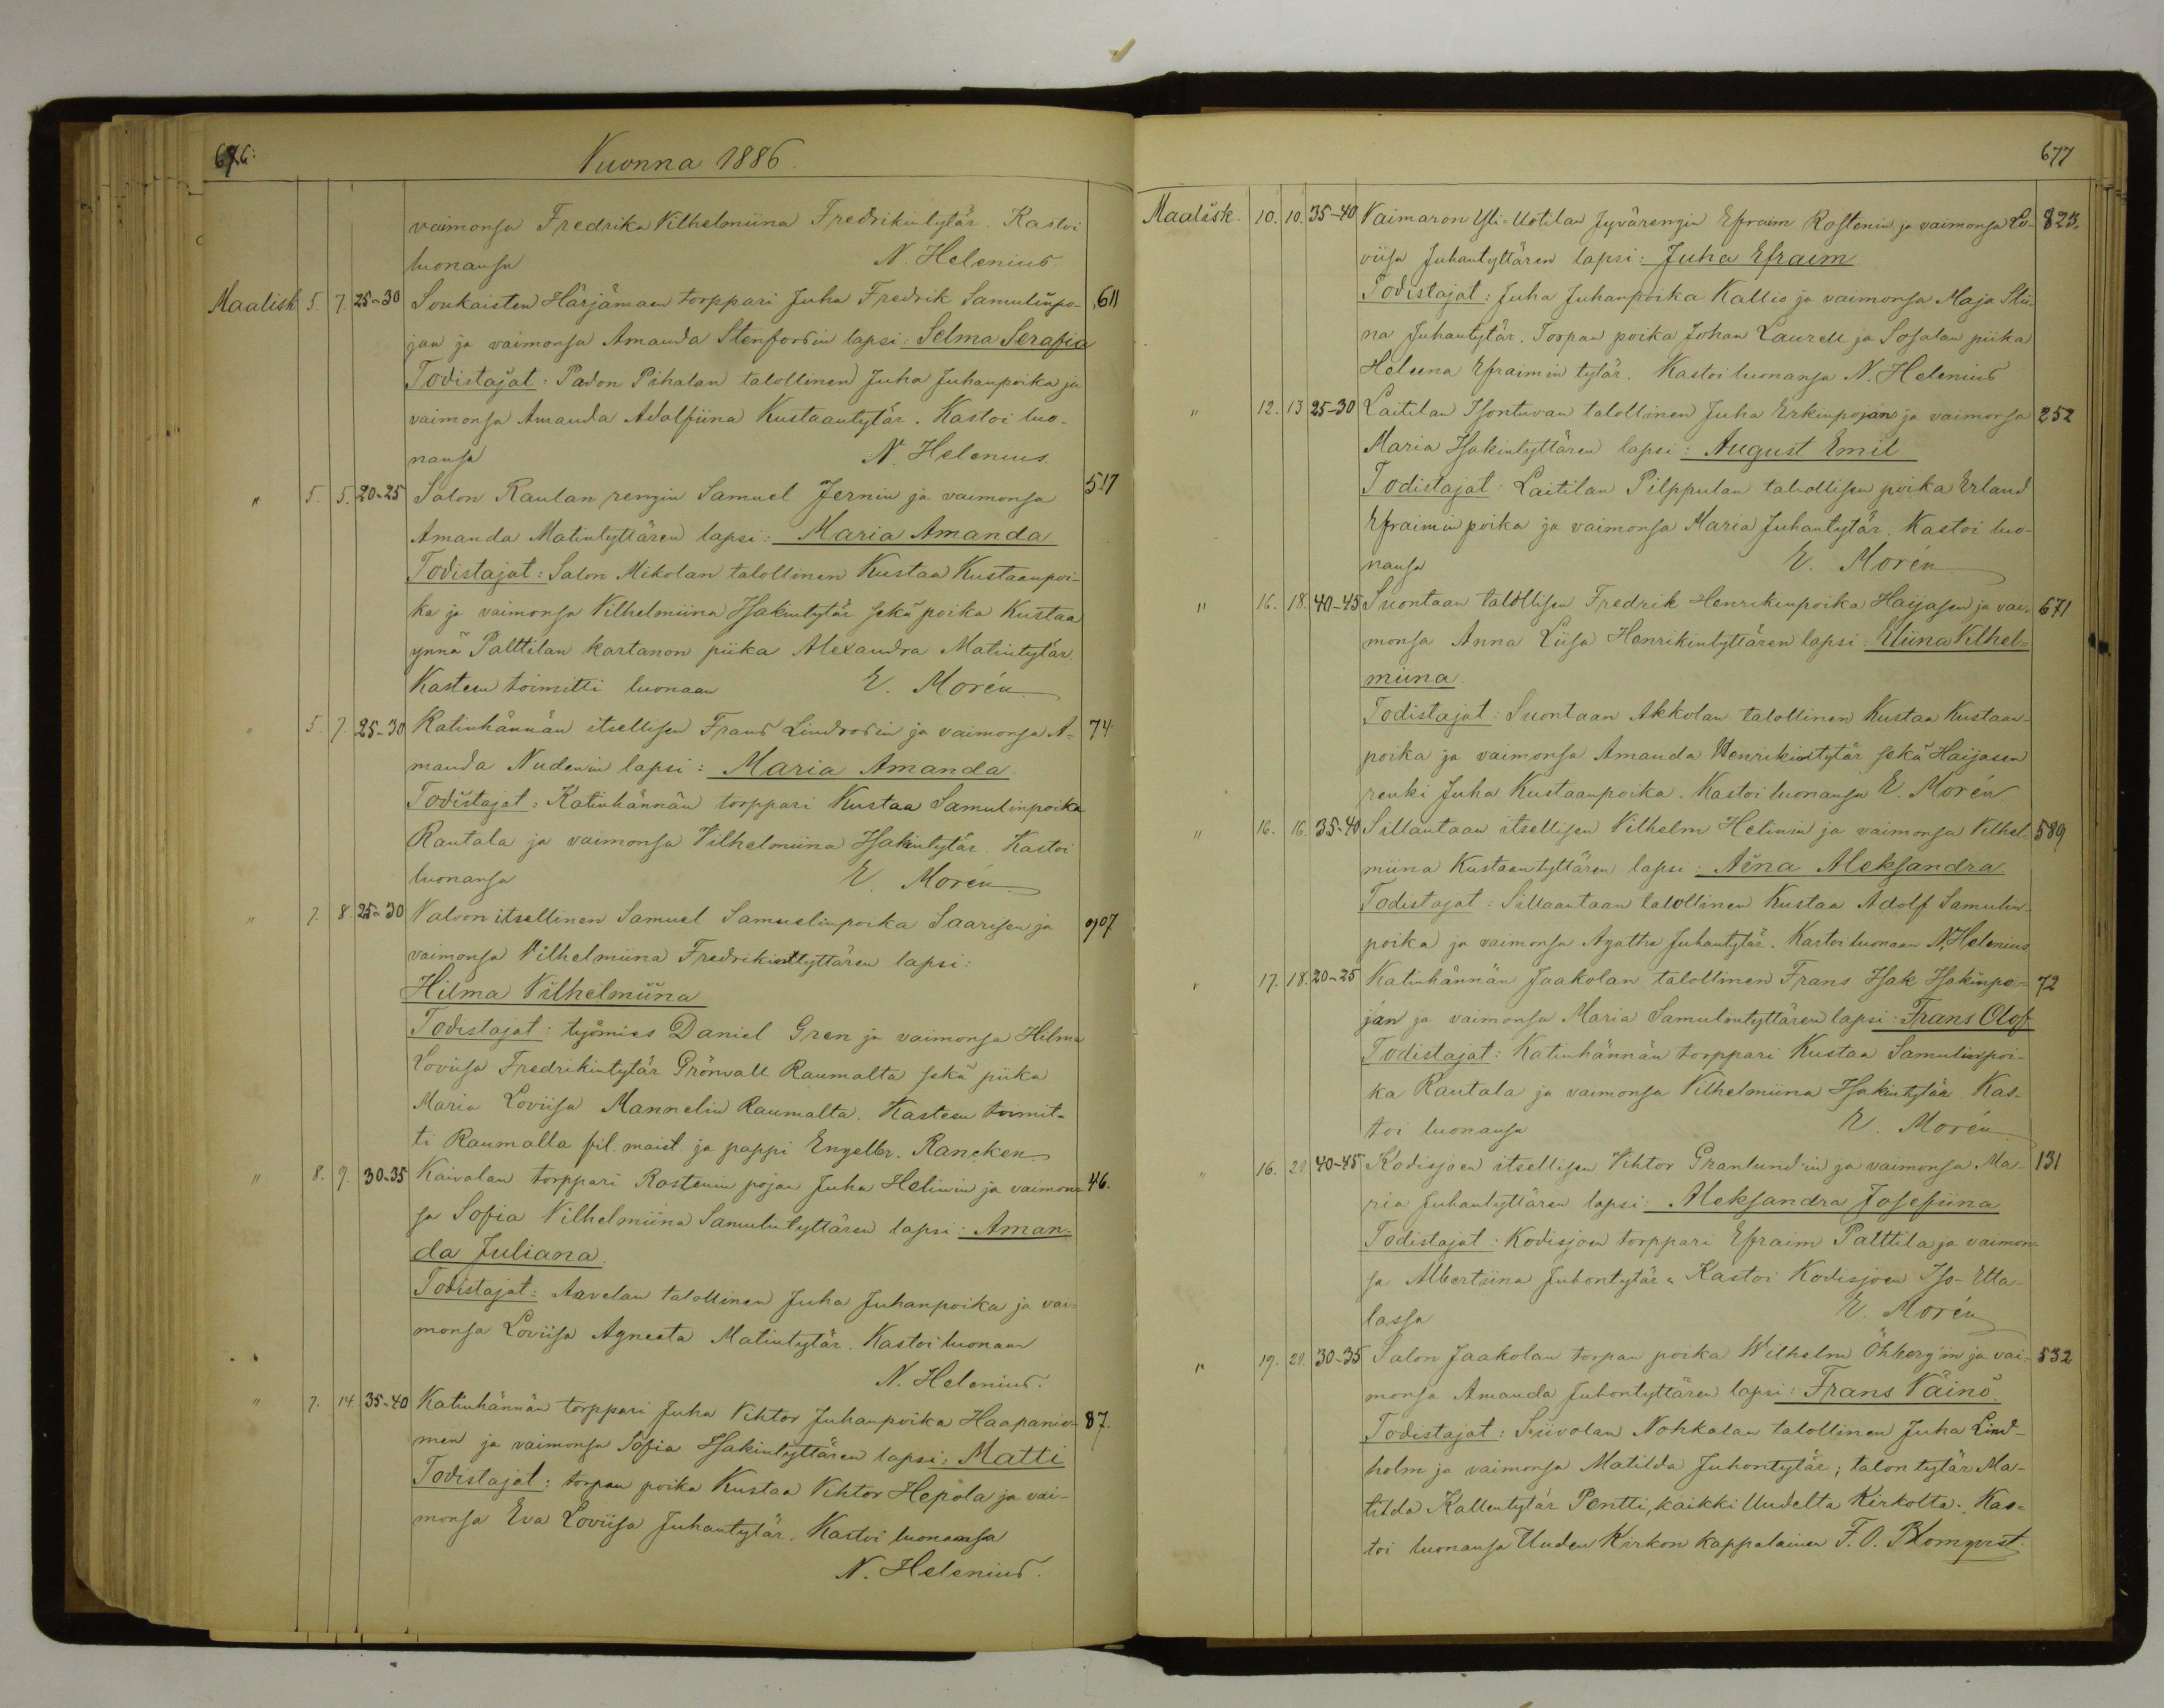 676.
Vuonna 1886.
vaimonsa Fredrika Vilhelmiina Fredrikintytär. Kastoi
luonansa N. Helenius.
Maalisk 5. 7. 25-30 Soukaisten Härjämaan torppari Juha Fredrik Samulinpo- 611
jan ja vaimonsa Amanda Stenforsin lapsi: Selma Serafia
Todistajat: Padon Pihalan talollinen Juha Juhanpoika ja
vaimonsa Amanda Adolfiina Kustaantytär. Kastoi luo-
nansa N. Helenius.
" 5. 5. 20-25 Salon Raulan rengin Samuel Jernin ja vaimonsa 517
Amanda Matintyttären lapsi: Maria Amanda
Todistajat: Salon Mikolan talollinen Kustaa Kustaanpoi-
ka ja vaimonsa Vilhelmiina Isakintytär sekä poika Kustaa
ynnä Palttilan kartanon piika Alexandra Matintytär.
Kasteen toimitti luonaan E. Morén
" 5. 7. 25-30 Katinhännän itsellisen Frans Lindrosin ja vaimonsa A- 74
manda Nudenin lapsi: Maria Amanda.
Todistajat: Katinhännän torppari Kustaa Samulinpoika
Rautala ja vaimonsa Vilhelmiina Isakintytär. Kastoi
luonansa E. Morén
" 7. 8. 25-30 Valvon itsellinen Samuel Samuelinpoika Saarisen ja 907
vaimonsa Vilhelmiina Fredrikintyttären lapsi:
Hilma Vilhelmiina
Todistajat: työmies Daniel Gren ja vaimonsa Hilma
Loviisa Fredrikintytär Grönvall Raumalta sekä piika
Maria Loviisa Mannelin Raumalta. Kasteen toimit-
ti Raumalla fil. maist. ja pappi Engelbr. Rancken
" 8. 9. 30-35 Kaivolan torppari Rostenin pojan Juha Helinin ja vaimon- 46.
sa Sofia Vilhelmiina Samulintyttären lapsi: Aman-
da Juliana.
Todistajat: Aavelan talollinen Juha Juhanpoika ja vai-
monsa Loviisa Agneeta Matintytär. Kastoi luonaan
N. Helenius.
" 7. 14 35-40 Katinhännän torppari Juha Vihtor Juhanpoika Haapanie- 87.
men ja vaimonsa Sofia Isakintyttären lapsi: Matti
Todistajat: torpan poika Kustaa Vihtor Hepola ja vai-
monsa Eva Loviisa Juhantytär. Kastoi luonansa
N. Helenius.
677
Maalisk. 10. 10. 35-40 Vaimaron Yli-Uotilan Jyvärengin Efraim Rostenin ja vaimonsa Lo- 823.
viisa Juhantyttären lapsi: Juha Efraim
Todistajat: Juha Juhanpoika Kallio ja vaimonsa Maja Stii-
na Juhantytär. Torpan poika Johan Laurell ja Sosalan piika
Heleena Efraimin tytär. Kastoi luonansa N. Helenius
" 12. 13 25-30 Laitilan Isontuvan talollinen Juha Erkinpojan ja vaimonsa 252
Maria Isakintyttären lapsi: August Emil
Todistajat: Laitilan Pilppulan talollisen poika Erland
Efraimin poika ja vaimonsa Maria Juhantytär. Kastoi luo-
nansa E. Morén
" 16. 18. 40-45 Suontaan talollisen Fredrik Henrikinpoika Haijasen ja vai- 671
monsa Anna Liisa Henrikintyttären lapsi: Eliina Vilhel-
miina.
Todistajat: Suontaan Akkolan talollinen Kustaa Kustaan-
poika ja vaimonsa Amanda Henrikintytär sekä Haijasen
renki Juha Kustaanpoika. Kastoi luonansa E. Morén
" 16. 16. 35-40 Sillantaan itsellisen Vilhelm Helinin ja vaimonsa Vilhel- 589
miina Kustaantyttären lapsi: Aina Aleksandra
Todistajat: Sillantaan talollinen Kustaa Adolf Samulin-
poika ja vaimonsa Agatha Juhantytär. Kastoi luonaan N. Helenius
" 17. 18. 20-25 Katinhännän Jaakolan talollinen Frans Isak Isakinpo- 72
jan ja vaimonsa Maria Samulintyttären lapsi: Frans Olof
Todistajat: Katinhännän torppari Kustaa Samulinpoi-
ka Rautala ja vaimonsa Vilhelmiina Isakintytär. Kas-
toi luonansa E. Morén
" 16. 20 40-45 Kodisjoen itsellisen Vihtor Granlund'in ja vaimonsa Ma- 131
ria Juhantyttären lapsi: Aleksandra Josefiina
Todistajat: Kodisjoen torppari Efraim Palttila ja vaimon-
sa Albertiina Juhontytär. Kastoi Kodisjoen Iso-Etta-
lassa E. Morén
" 19. 20. 30-35 Salon Jaakolan torpan poika Wilhelm Öhberg'in ja vai- 532
monsa Amanda Juhontyttären lapsi: Frans Väinö.
Todistajat: Siivolan Nohkalan talollinen Juha Lind-
holm ja vaimonsa Matilda Juhontytär; talon tytär Ma-
tilda Kallentytär Pentti, kaikki Uudelta Kirkolta. Kas-
toi luonansa Uuden Kirkon Kappalainen F. O. Blomqvist.